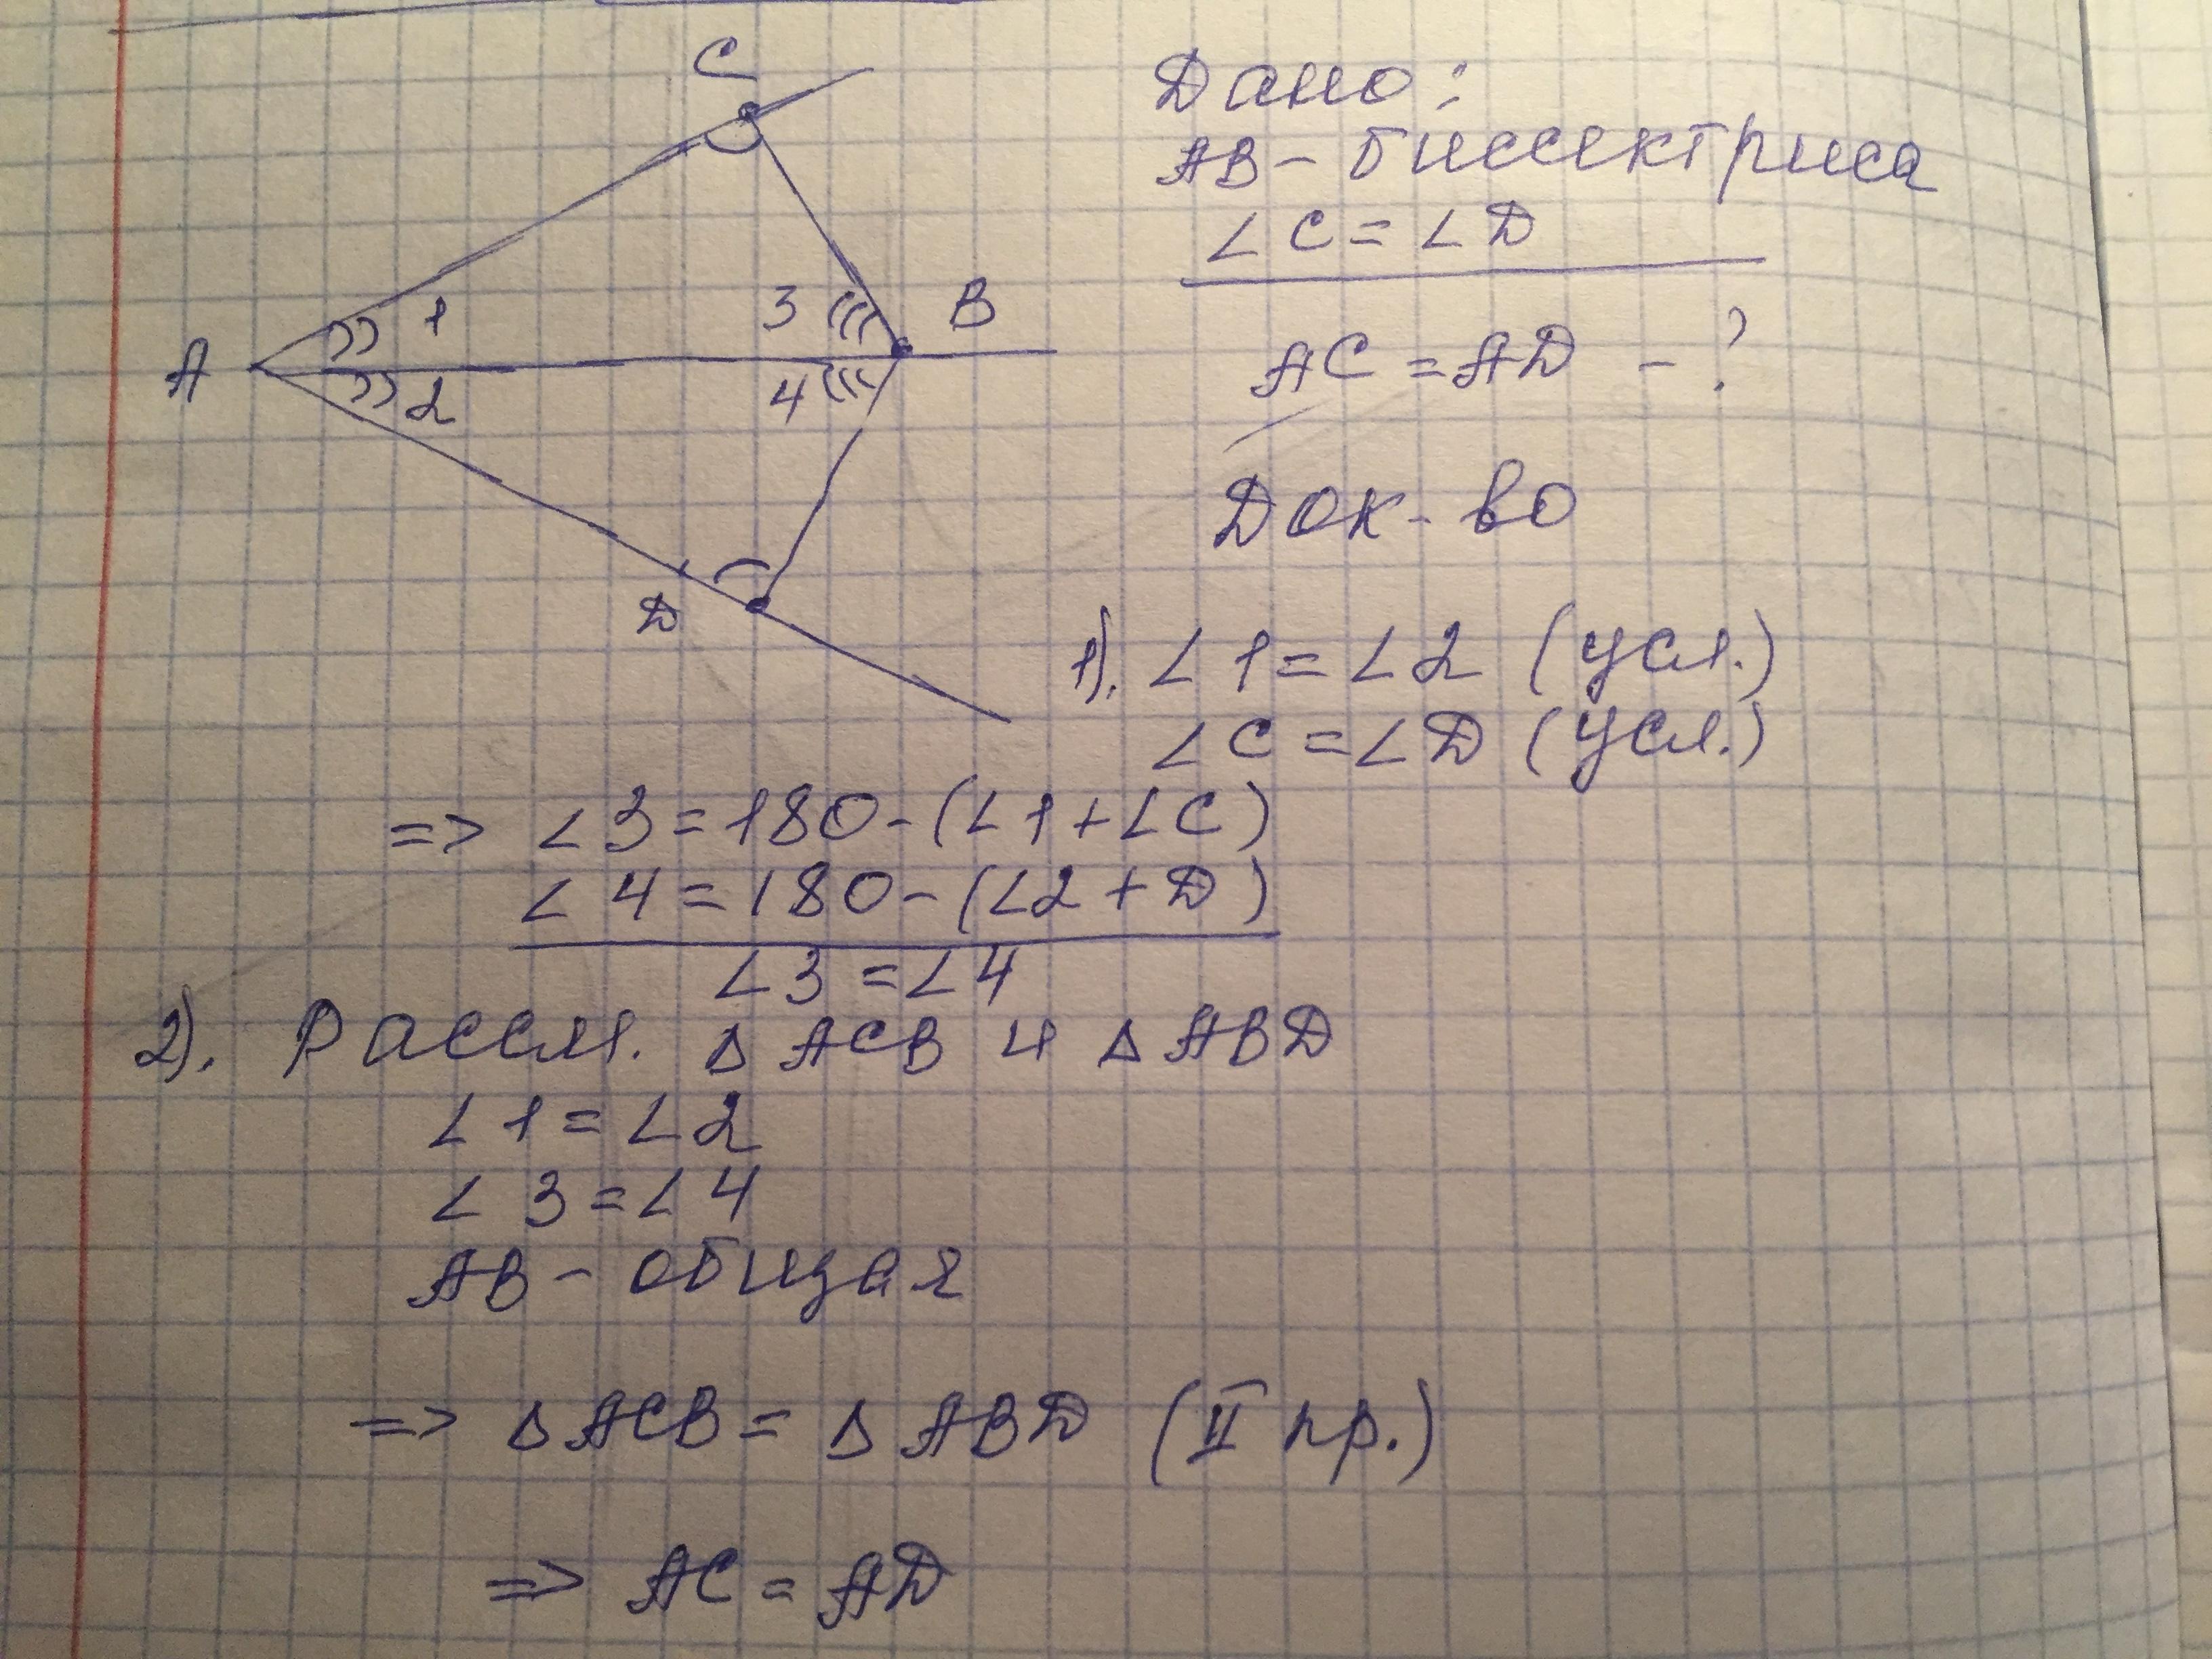 C
1
3
B
A
2
4
D
Дано:
AB - биссектриса
∠C = ∠D
AC = AD - ?
Док-во
1). ∠1 = ∠2 (усл.)
∠C = ∠D (усл.)
=> ∠3 = 180 - (∠1 + ∠C)
∠4 = 180 - (∠2 + D)
∠3 = ∠4
2). Рассм. Δ ACB и Δ ABD
∠1 = ∠2
∠3 = ∠4
AB - общая
=> Δ ACB = Δ ABD (II пр.)
=> AC = AD